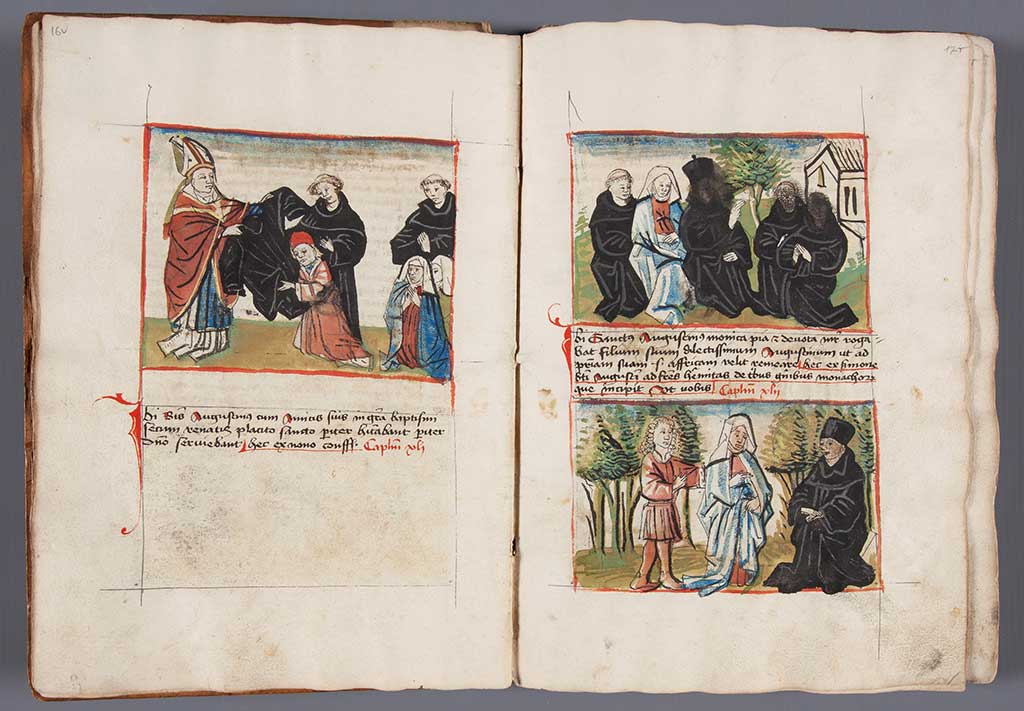 16v
hi Bts Augustinus cum Amicis suis in gra baptismi
secum renatis placito sancto pariter habitabant pariter
dno serviebant hec ex nono conff. Caplm xli
17r
hi Sancti Augustinus monica pia et devota mr roga
bat filium suum dilectissimum Augustinum ut ad
priam suam .s. affricam velit remeare hec ex simone
bti Augusti ad fres hemitas de tribus gnibus monachor
que incipit Ut vobis Caplm xlii